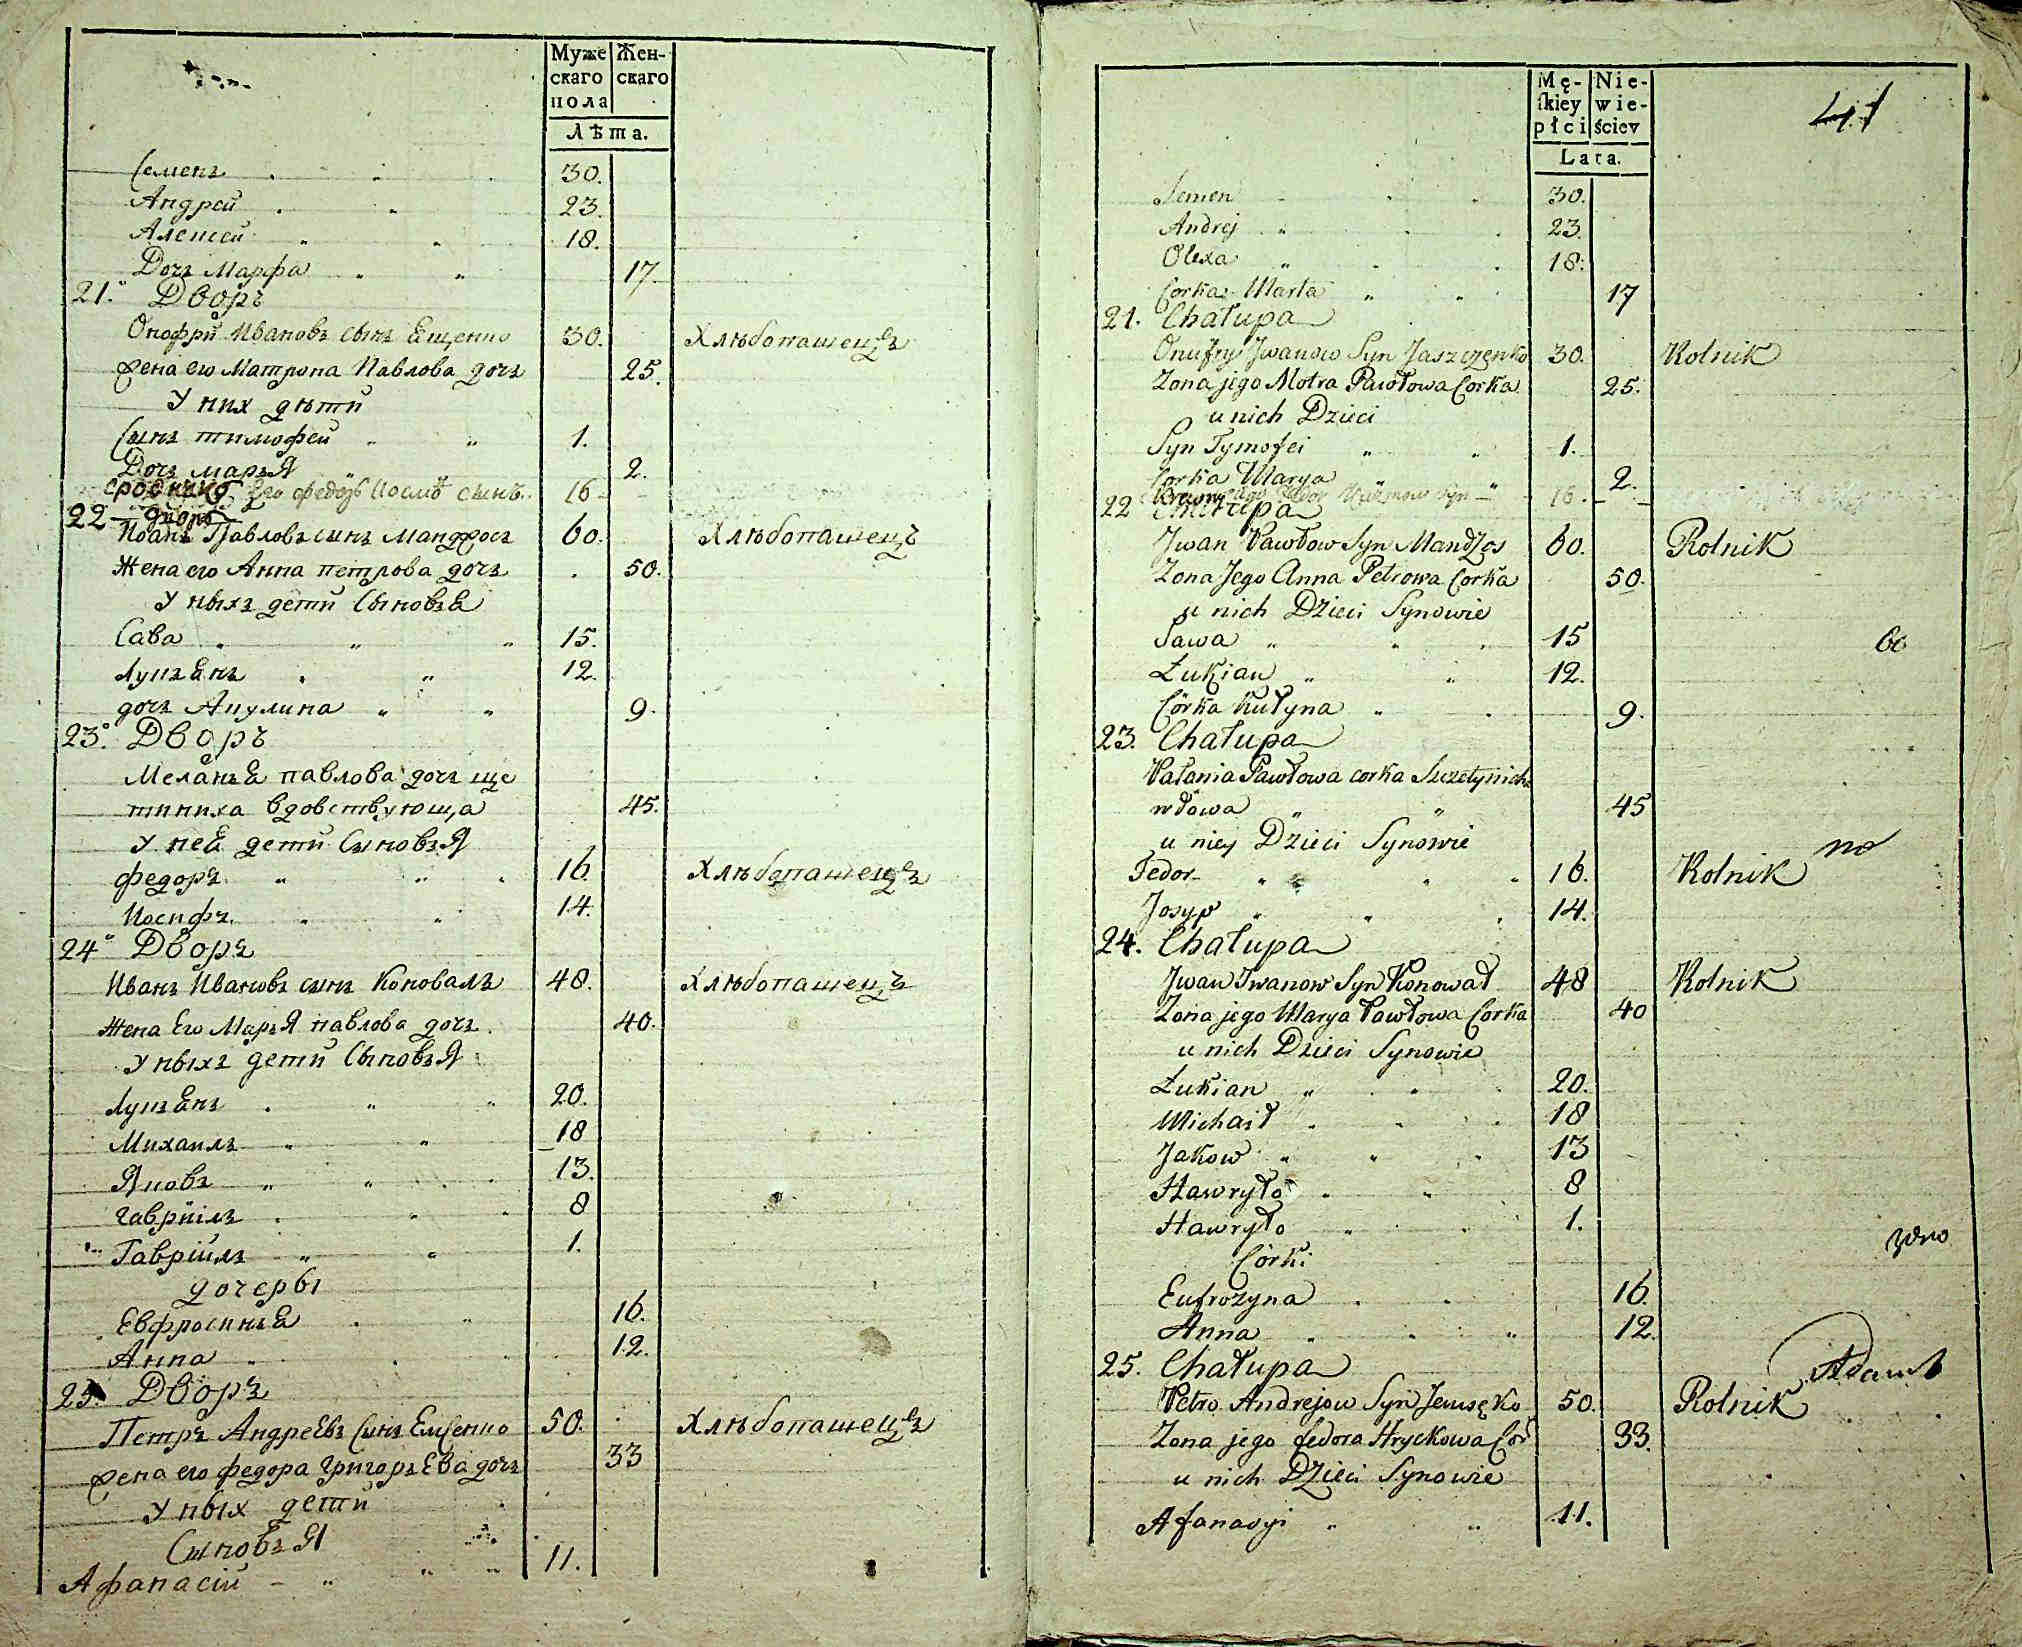 Муже Жен-
скаго скаго
пола
Лѣта.
Семенъ 30.
Андрей 23.
Алексей 18.
Дочъ Марфа 17.
21. Дворъ
Онофрiй Ивановъ сынъ Ещенко 30. Хлѣбопашецъ
жена его Матрона Павлова дочъ 25.
У них дѣти
Сынъ тимофей 1.
Дочъ марья 2.
его федоръ сынъ 16
22 дворъ
Иоанъ Павловъ сынъ Манджосъ 60. Хлѣбопашецъ
Жена его Анна петрова дочъ 50.
У ныхъ дети Сыновья
Сава 15.
Лукъянъ 12.
дочъ Акулина 9.
23. Дворъ
Меланья павлова дочъ ще
тиниха вдовствующа 45.
У ней дети Сыновья
федоръ 16. Хлѣбопашецъ
Иосифъ 14.
24 Дворъ
Иванъ Ивановъ сынъ Коновалъ 48. Хлѣбопашецъ
Жена Его Марья павлова дочъ 40.
У ныхъ дети Сыновья
Лукъянъ 20.
Михаилъ 18
Яковъ 13.
гаврiилъ 8
Гаврiилъ 1.
дочеры
Евфросинья 16.
Анна 12.
25. Дворъ
Петръ Андреевъ Сынъ Емсенко 50. Хлѣбопашецъ
жена его федора григорьева дочъ 33
У ных дети
Сыновья
Афанасiй 11.
41
Mę- Nie-
ſkiey wie-
płci ściey
Lata.
Semen 30.
Andrej 23.
Olexa 18.
Corka Marta 17
21. Chałupa
Onufry Jwanow Syn Jaszczenko 30. Rolnik
Zona jego Motra Pawłowa Corka 25.
u nich Dzieci
Syn Tymofei 1.
Corka Marya 2.
jego Fedor Syn 16.
22 Chałupa
Jwan Pawłow Syn Mandzos 60. Rolnik
Zona Jego Anna Petrowa Corka 50.
u nich Dzieci Synowie
Sawa 15
Łukian 12.
Córka Kułyna 9.
23. Chałupa
Małania Pawłowa corka Szczetynicha
wdowa 45
u niey Dzieci Synowie
Fedor 16. Rolnik
Josyp 14.
24. Chałupa
Jwan Jwanow Syn Konował 48 Rolnik
Zona jego Marya Pawłowa Corka 40
u nich Dzieci Synowie
Łukian 20.
Michaił 18
Jakow 13
Hawryło 8
Hawryło 1.
Córki
Eufrozyna 16.
Anna 12.
25. Chałupa
Petro Andrejow Syn Jemsęko 50. Rolnik
Zona jego fedora Hryckowa Cor 33.
u nich Dzieci Synowie
Afanasyi 11.